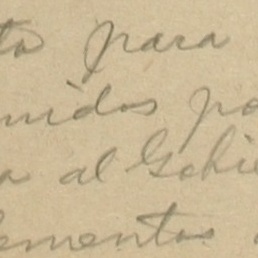 to para
nidos po
a al Gobie
lementos